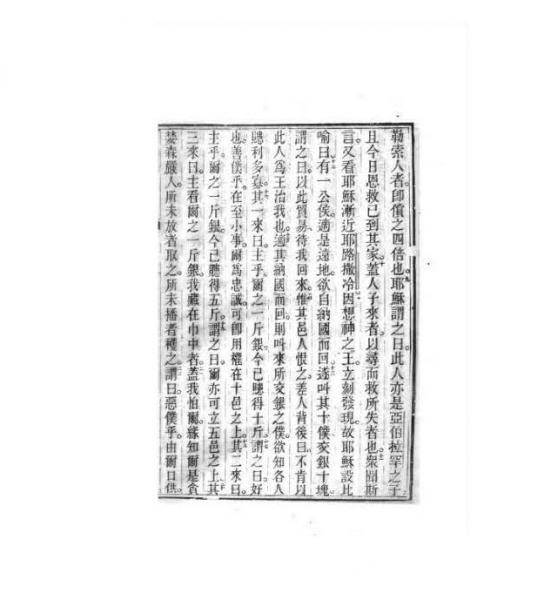 勒索人者。卽償之四倍也。耶穌謂之曰。此人亦是亞伯拉罕之子
且今日恩救已到其家。蓋人子來者。以尋而救所失者也。衆聞斯
言。又看耶穌漸近耶路撒冷。因想神之王立刻發現。故耶穌設比
喻曰。有一公侯。適是遠地。欲自納國而回。遂叫其十僕。交銀十塊
謂之曰。以此貿易待我回來。惟其邑人恨之。差人背後曰。不肯以
此人爲王治我也。適其納國而回。則叫來所交銀之僕。欲知各人
賺利多寡。其一來曰。主乎。爾之一斤銀。今已賺得十斤。謂之曰。好
也。善僕乎。在至小事。爾爲忠誠。可卽用權在十邑之上。其二來曰。
主乎。爾之一斤銀。今已賺得五斤。謂之曰。爾亦可立五邑之上。其
三來曰。主看爾之一斤銀。我藏在巾中者。蓋我怕爾。緣知爾是貪
婪森嚴人。所未放者取之。所未播者穫之。謂曰。惡僕乎。由爾口供。